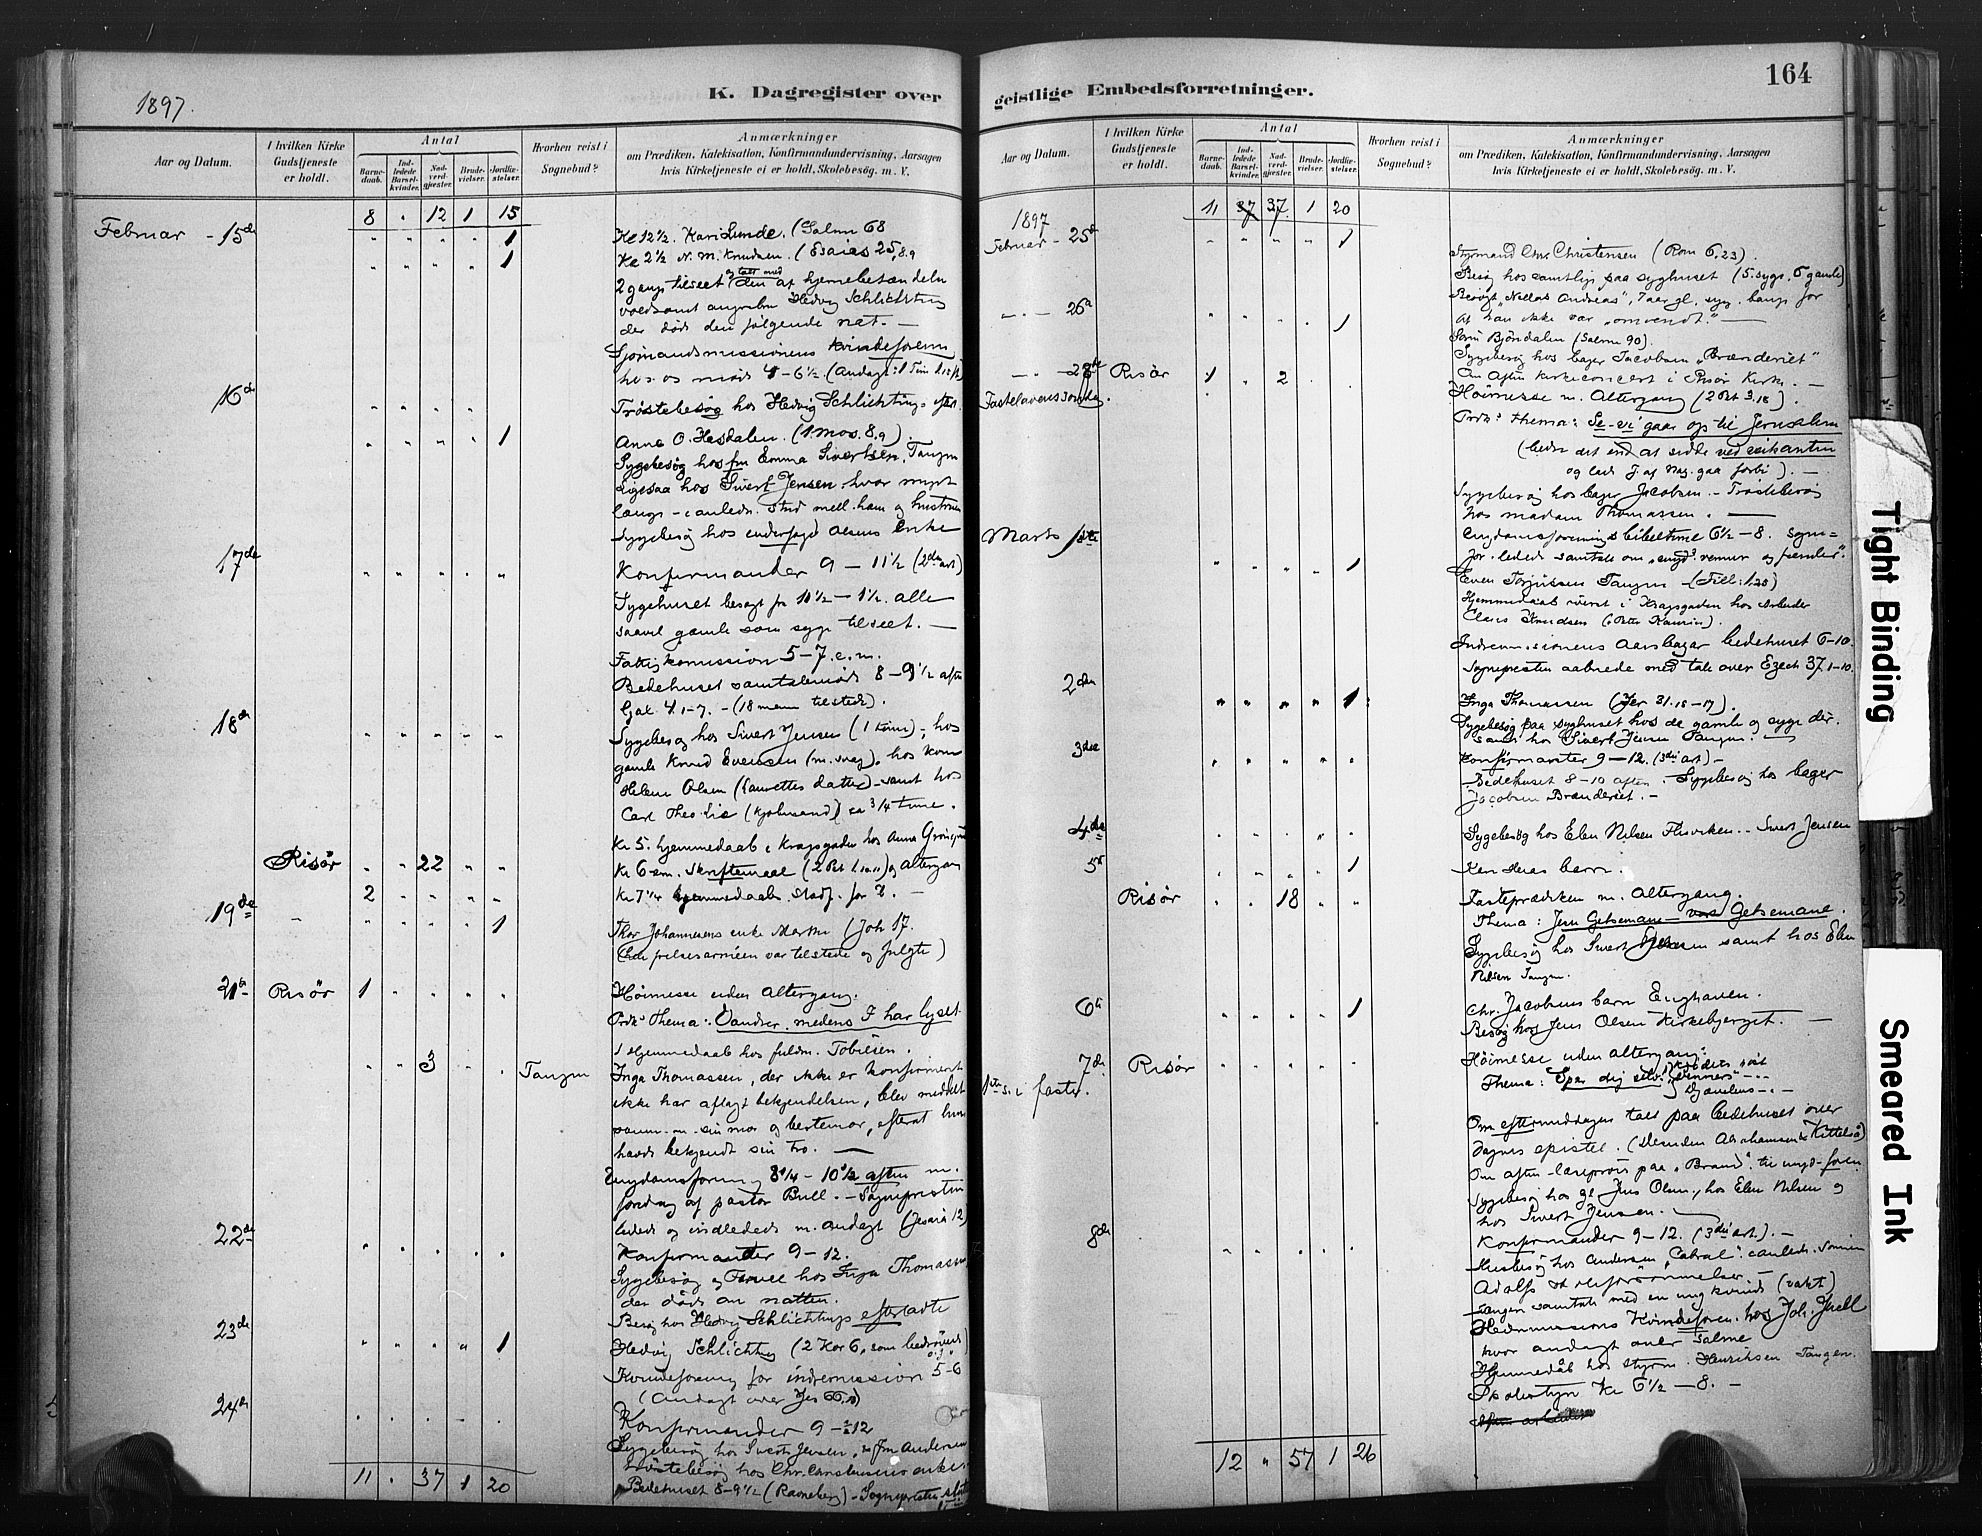 1897.
K. Dagregister over
Aar og Datum.
I hvilken Kirke Gudstjeneste er holdt.
Antal
Barnedaab.
Indledede Barselkvinder.
Nadverdgjester.
Brudevielser.
Jordfæstelser.
Hvorhen reist i Sognebud?
Anmærkninger
om Prædiken, Katekisation, Konfirmandundervisning, Aarsagen
hvis Kirketjeneste ei er holdt, Skolebesøg. m. V.
8 " 12 1 15
Februar - 15de " " " " 1 Kl 12½. Kari Lunde. (Salme 68
" " " " 1 Kl 2½ N. M. Knudsen. (Esaias 25,8.9
2 gange tilseet og talt med den af hjernebetændelse
voldsomt angrebne Hedvig Schlichting
der døde den følgende nat. —
Sjømandsmissionens kvindeforen
hos os møde 4-6½.
16de " " " " Trøstebesøg hos Hedvig Schlichtings efter.
" " " " 1 Anne O. Hesdalen. (1 Mos. 8.9).
Sygebesøg hos fru Emma Sivertsen, Tangen
Ligesaa hos Sivert Jensen hvor meget
længe - i anledn. strid mell. ham og hustruen
Sygebesøg hos Olsens enke
17de " " " " " Konfirmander 9 - 11½ (2den art)
Sygehuset besøgt fra 11½ - 1½. alle
saavel gamle som syge tilseet. —
Fattigkomission 5-7. e.m.
Bedehuset samtalemøde 8-9½ aften
Gal. 4.1-7. - (18 mænd tilstede).
18de " " " " " Sygebesøg hos Sivert Jensen (1 time), hos
gamle Knud Evensen (m. svag), hos kone
Helene Olsen (Laurettes datter) - samt hos
Carl Theo. Lie (Kjøbmand) ca 3/4 time.
Kl 5. hjemmedaab i Kragsgaden hos Anna
Risør " " 22 " " Kl 6 em. Skriftemaal (2 Pet 1.10.11) og altergang
2 " " " " Kl 7¼ hjemmedaabs. Stadf. for 2. —
19de " " " " " 1 Thor Johannesens enke Marthe (Joh 17.
(Frelsesarméen var tilstede og fulgte)
21de Risør 1 " " " " Høimesse uden altergang.
Prdk's Thema: Vandrer, medens I har lyset.
1 Hjemmedaab hos fuldm. Tobiesen.
" " 3 " " Tangen Inga Thomassen, der ikke er konfirmeret
ikke har aflagt bekjendelsen, blev meddelt
samm. m. sin mor og bestemor, efterat hun
havde bekjendt sin tro. —
Ungdomsforening 8¼ - 10½ aften m.
foredrag af pastor Bull. - Sognepresten
ledede og indledede m. andagt (Jesaia 12)
22de " " " " " Konfirmander 9-12.
Sygebesøg og Farvel hos Inga Thomassen
der døde om natten.
Besøg hos Hedvig Schlichtings efterladte
23de " " " " 1 Hedvig Schlichting (2 Kor 6, som bedrøvede
Kvindeforening for indremission 5-6
(Andagt over Jes
24de " " " " Konfirmander 9-12
Sygebesøg hos Sivert Jensen, fru Andersen
Trøstebesøg hos Chr. Christensens enke.
11 " 37 1 20 Bedehuset 8-9½ (Ravneberg) - Sognepresten
164
geistlige Embedsforretninger.
Aar og Datum.
I hvilken Kirke Gudstjeneste er holdt.
Antal
Barnedaab.
Indledede Barselkvinder.
Nadverdgjester.
Brudevielser.
Jordfæstelser.
Hvorhen reist i Sognebud?
Anmærkninger
om Prædiken, Katekisation, Konfirmandundervisning, Aarsagen
hvis Kirketjeneste ei er holdt, Skolebesøg. m. V.
1897 11 37 37. 1 20
Februar - 25de " " " " 1 Styrmand Chr. Christensen (Rom 6,23).
Besøg hos samtlige paa syghuset (5 syge, 6 gamle)
Besøgt "Nellas Andreas", 7 aar gl, syg, bange for
- " - 26de " " " " 1 at han ikke var "omvendt." —
Bjöndalen (Salme 90).
Sygebesøg hos bager Jacobsen "Brænderiet"
- " - 28de Risør 1 " 2 " " Om aften kirkeconcert i Risør Kirke. —
Fastelavenssøndag. Høimesse m. Altergang (2 Pet 3,18).
Prdk's thema: Se - vi gaar op til Jerusalem
(bedre det end at sidde ved veikanten
og lade J. af Naz. gaa forbi). —
Sygebesøg hos bager Jacobsen. - Trøstebesøg
hos madam Thomassen. —
Marts 1ste Ungdomsforenings bibeltime 6½-8. Sogne=
" " " " 1 for. ledede samtale om "ungd. venner og fiender".
Even Torjussen Tangen - (Fill: 1,23)
Hjemmedaab i Kragsgaden hos Arbeider
Claus Knudsen
Indremissionens Aarsbazar bedehuset 6-10.
Sognepresten aabnede med tale over Ezech 37.1-10.
2den " " " " 1 Inga Thomassen (Jer 31.15-17).
Sygebesøg paa syghuset hos de gamle og syge der.
samt hos Sivert Jensen Tangen. —
3die " " " " " Konfirmanter 9-12. (3die art) -
Bedehuset 8-10 aften. Sygebesøg hos bager
Jacobsen Brænderiet. -
4de " " " " " Sygebesøg hos Elen Nilsen .. Sivert Jensen
5te " " " " 1 barn.
Risør " " 18 " " Fasteprædiken m. Altergang.
Thema: Jesu Getsemane - vore Getsemane.
Sygebesøg hos Sivert Jensen samt hos Elen
Nilsen Tangen.
6te " " " " 1 Chr. Jacobsens barn Enghaven.
Besøg hos Jens Olsen Kirkebjerget. —
7de Risør " " " " " Høimesse uden altergang:
1ste S. i faste. Thema: Spar dig selv!
Om eftermiddagen talt paa bedehuset over
dagens epistel. (desuden Abrahamsen & Kittelsø)
Om aften læseprøve paa "Brand" til ungd-foren
Sygebesøg hos gl Jens Olsen, hos Elen Nilsen og
hos Sivert Jensen. —
8de " " " " " Konfirmander 9-12. (3die art.). —
Husbesøg hos Andersen "Cabral" i anledn. sønnen
Adolfs
samtale med en ung kvinde (vakt)
Hedn.missions Kvindeforen. hos Joh. Juell
hvor andagt over salme
Hjemmedåb hos styrm. Henriksen Tangen.
Skolestyre Kl 6½ - 8. -
12 " 57 1 26
Tight Binding
Smeared Ink